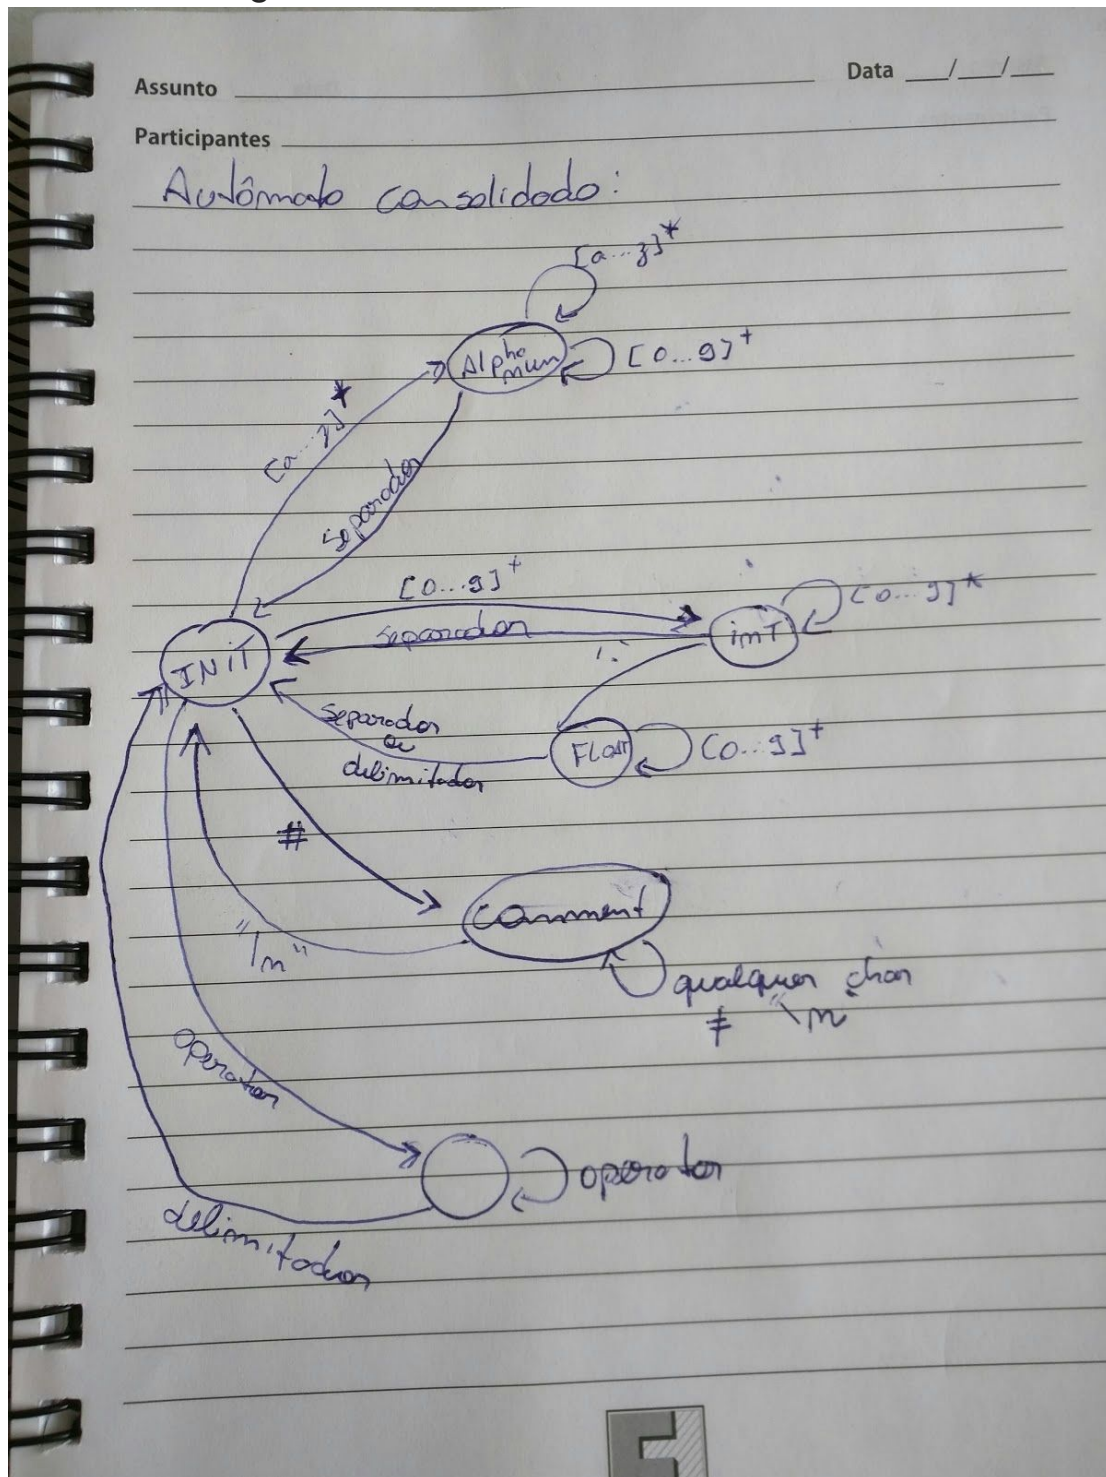 Assunto
Data __/__/__
Participantes
Autômato consolidado:
[a...z]*
Alpha
num
[0...9]+
[a...z]*
Separador
[0...9]+
[0...9]*
Separador
INIT
inT
'.'
Separador
ou
delimitador
Float
[0...9]+
#
Comment
"/n"
qualquer char
≠ "\n"
operator
operator
delimitador